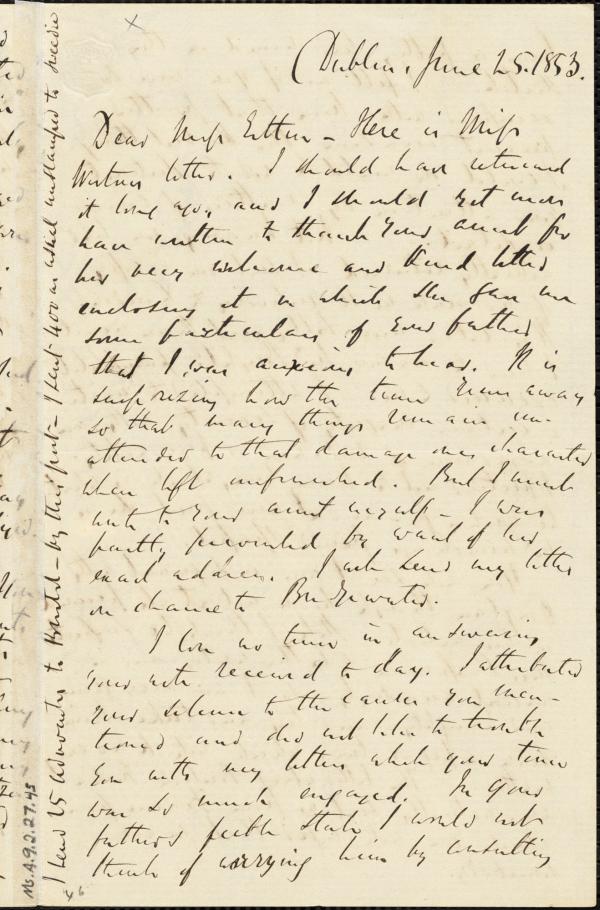 Dublin, June 25. 1853.
Dear Miss Estlin – Here is Miss
Weston's letter. I should have returned
it long ago, and I should yet more
have written to thank your aunt for
her very welcome and kind letter
enclosing it in which she gave me
some particulars of your father
that I was anxious to hear. It is
surprizing how the time runs away
so that many things remain un-
attended to that damage ones character
when left unperformed. But I must
write to your aunt myself – I was
partly prevented by want of her
exact address. I will send my letter
on chance to Bridgewater.
I lose no time in answering
your note received to day. I attributed
your silence to the causes you men-
tioned and did not like to trouble
you with my letters while your time
was so much engaged. In your
father's feeble state I would not
think of worrying him by consulting
I send 25 Advocates to Bristol – by this post – I sent 400 as asked unstamped to
Ms.A.9.2.27.45
46